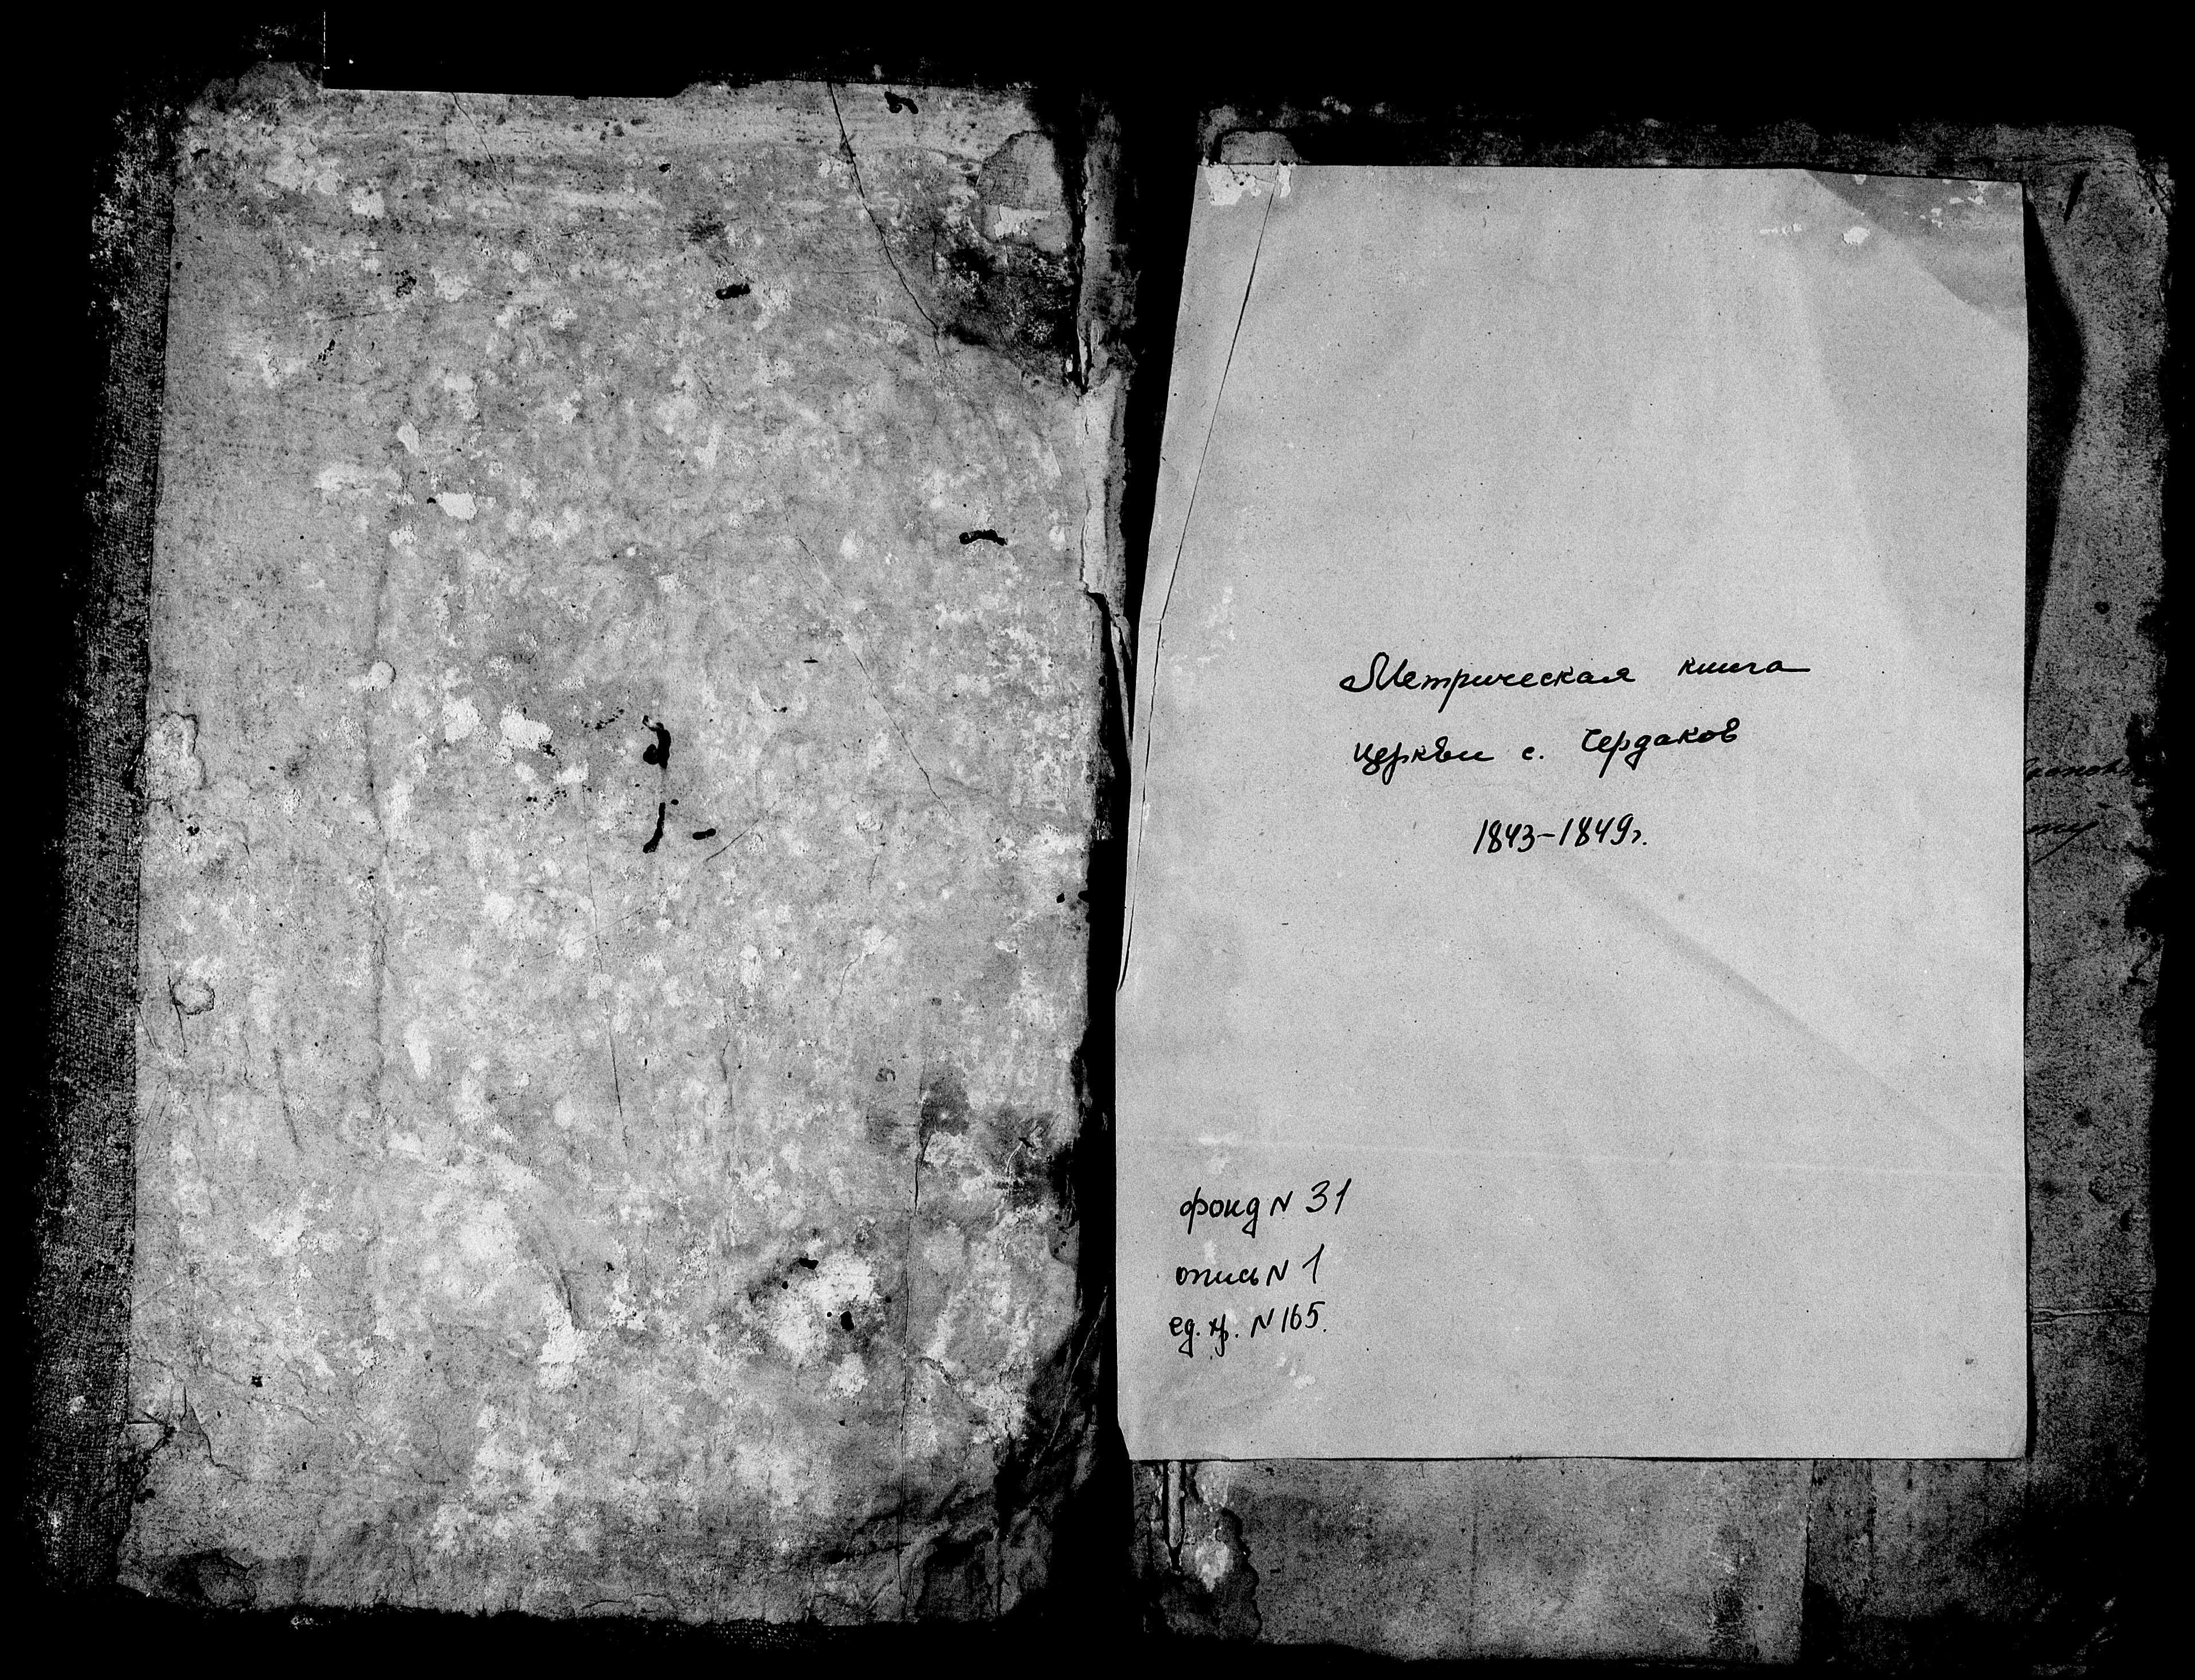 Метрическая книга
церкви с. Чердаков
1843-1849г.
фонд N 31
опись N 1
ед. хр. N 165.